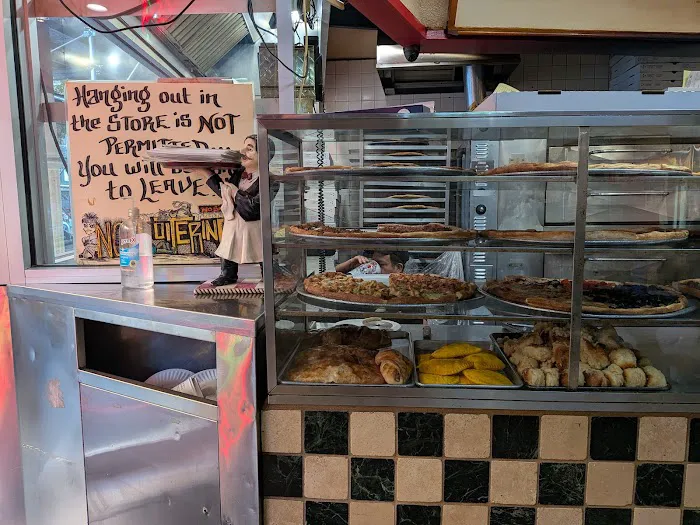 Hanging out in
the STORE is NOT
PERMITTED
You will
to LEAVE
NO LOITERING